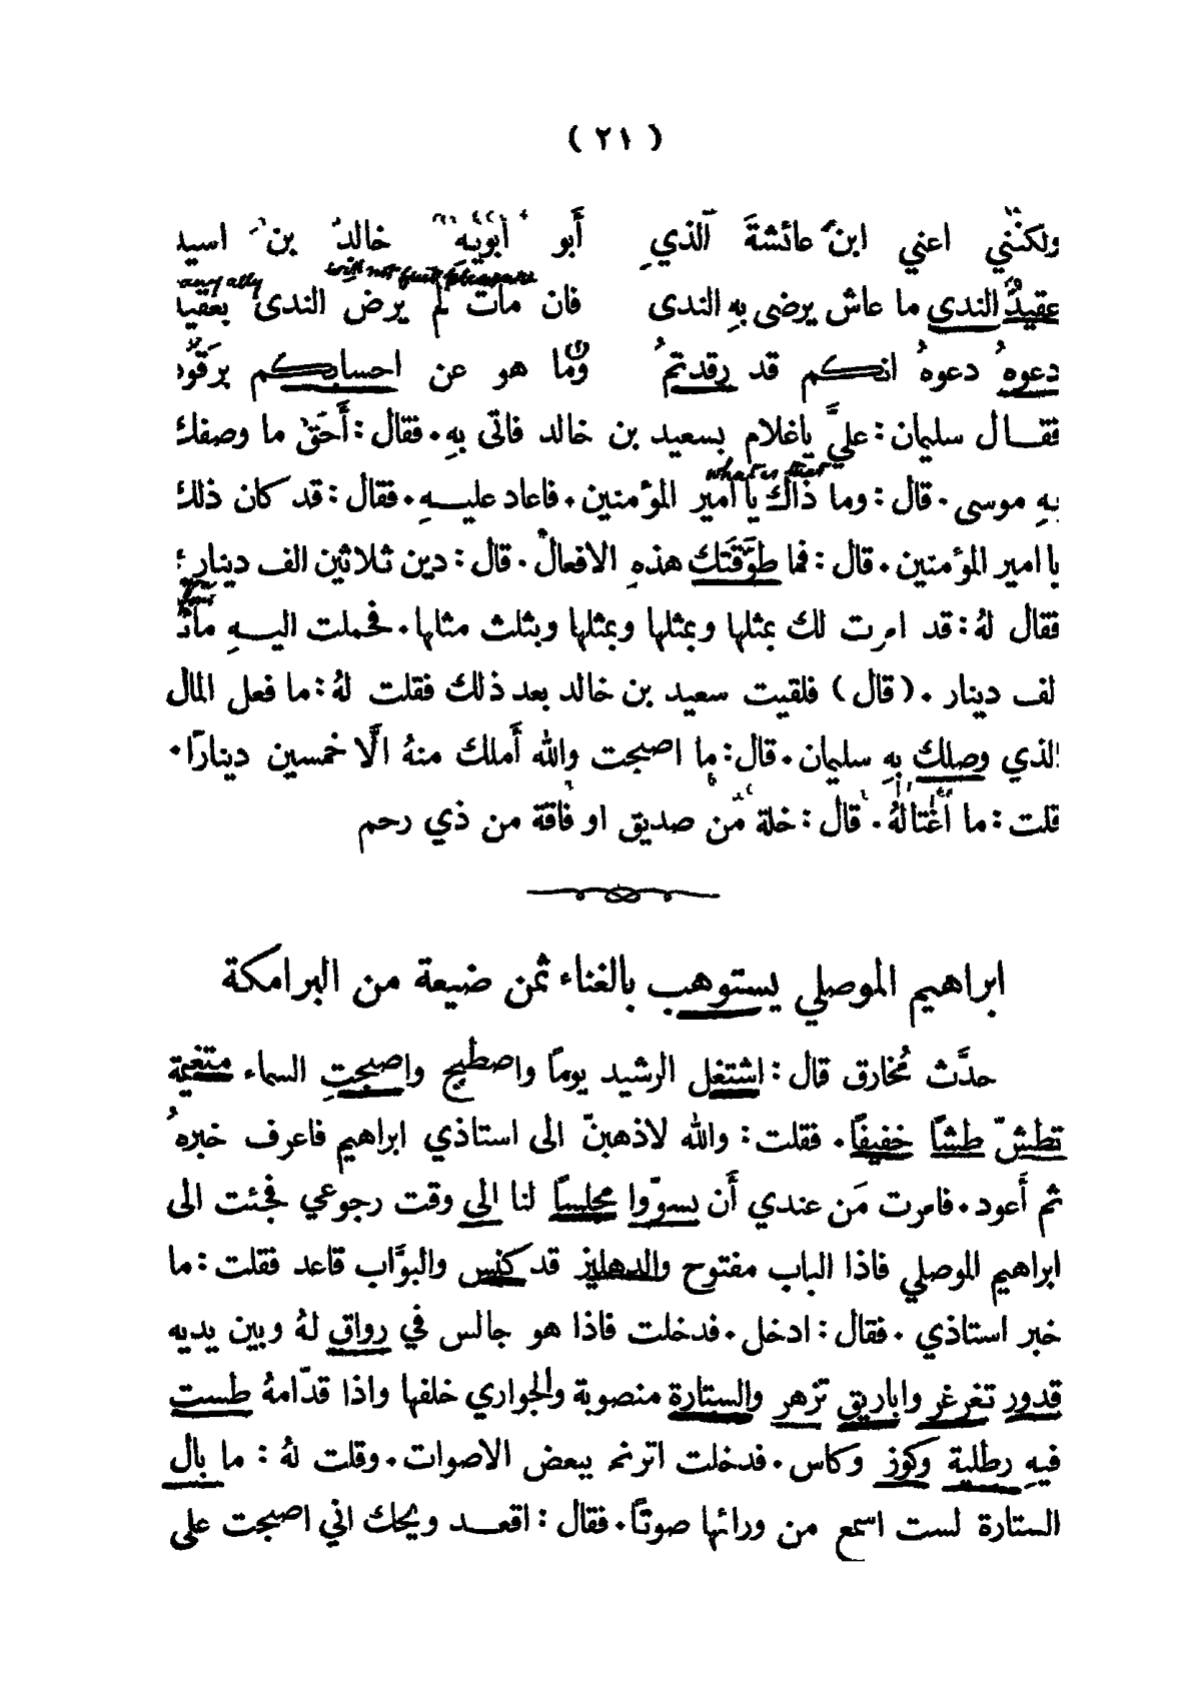 ( ٢١ )
ولكنَّني اعني ابنَ عائشةَ الَّذي أَبو أَبويْهِ خالدُ بن اسيد
any ally will not find pleasure
عقيدُ الندى ما عاش يرضى بهِ الندى فان مات لم يرض الندى بعقيد
دعوهُ دعوهُ انكم قد رقدتمُ وما هو عن احسابكم برَقود
فقـال سليمان: عليَّ ياغلام بسعيد بن خالد فاتى بهِ. فقال: أَحَقٌّ ما وصفك
what is that
بهِ موسى. قال: وما ذاك يا امير المؤمنين. فاعاد عليـهِ. فقال: قد كان ذلك
يا امير المؤمنين. قال: فما طوَّقَتك هذهِ الافعال. قال: دين ثلاثين الف دينار
فقال لهُ: قد امرت لك بمثلها وبمثلها وبمثلها وبثلث مثلها. فحملت اليـهِ مائة
لف دينار. (قال) فلقيت سعيد بن خالد بعد ذلك فقلت لهُ: ما فعل المال
الذي وصلك بهِ سليمان. قال: ما اصبحت والله أَملك منهُ الَّا خمسين دينارًا.
قلت: ما اغْتالهُ. قال: خلة من صديق او فاقة من ذي رحم
ابراهيم الموصلي يستوهب بالغناء ثمن ضيعة من البرامكة
حدَّث مُخارق قال: اشتغل الرشيد يومًا واصطبح واصبحتِ السماء متغيمة
تطشّ طشًّا خفيفًا. فقلت: والله لاذهبنّ الى استاذي ابراهيم فاعرف خبرهُ
ثم أَعود. فامرت مَن عندي أَن يسوّوا مجلسًا لنا الى وقت رجوعي فجئت الى
ابراهيم الموصلي فاذا الباب مفتوح والدهليز قد كنس والبوَّاب قاعد فقلت: ما
خبر استاذي. فقال: ادخل. فدخلت فاذا هو جالس في رواق لهُ وبين يديه
قدور تغرغر واباريق تزهر والستارة منصوبة والجواري خلفها واذا قدّامهُ طست
فيهِ رطلية وكوز وكاس. فدخلت اترنم ببعض الاصوات. وقلت لهُ: ما بال
الستارة لست اسمع من ورائها صوتًا. فقال: اقعـد ويحك اني اصبحت على